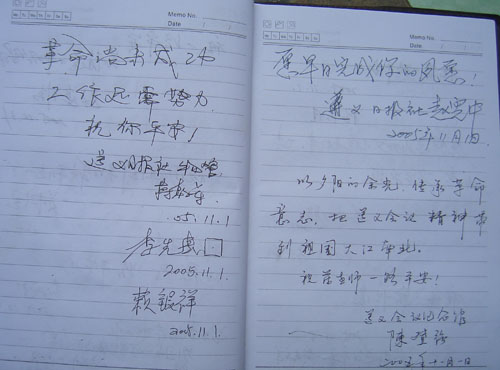 Memo No.
Date
革命尚未成功
工作还需努力
祝你平安!
遵义日报社
05.11.1
李先
2005.11.1.
赖银祥
2005.11.1.
Memo No.
Date
愿早日完成你的夙愿!
遵义日报社
2005年11月1日
以夕阳的余光,传承革命
意志,把遵义会议精神带
到祖国大江南北。
祝 老师一路平安!
遵义会议纪念馆
陈
2005年十一月一日